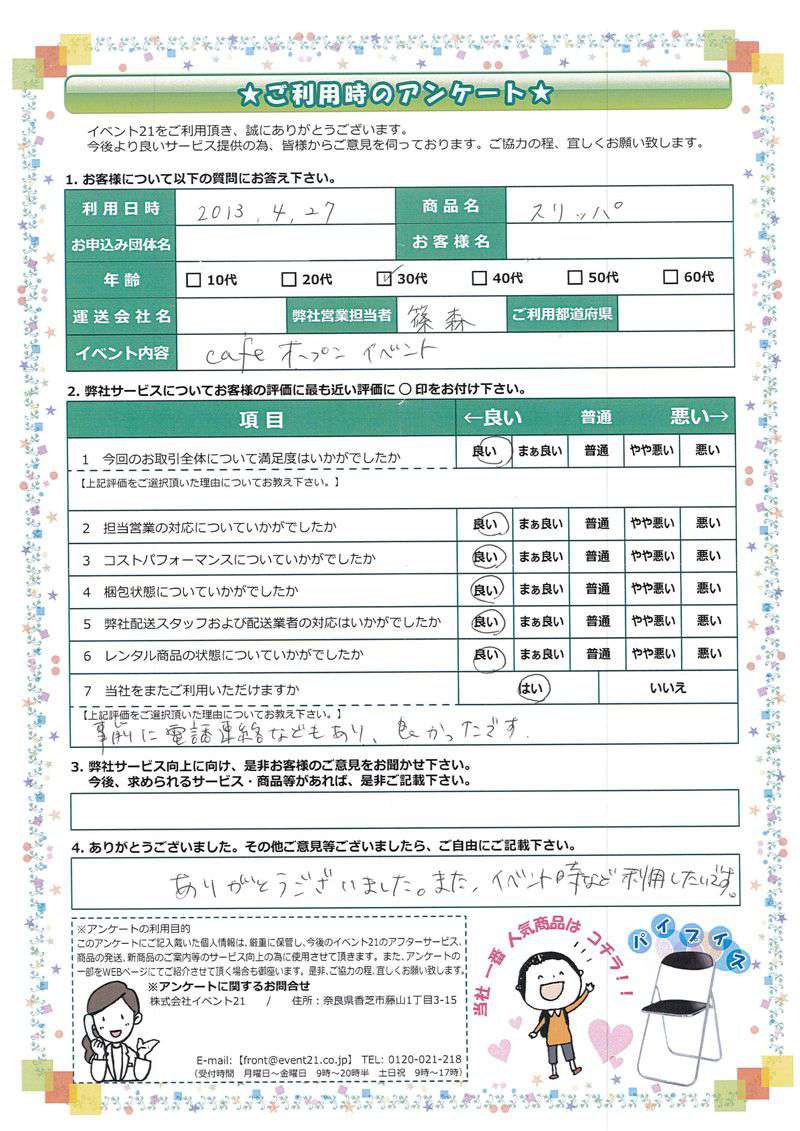 ★ご利用時のアンケート★
イベント21をご利用頂き、誠にありがとうございます。
今後より良いサービス提供の為、皆様からご意見を伺っております。ご協力の程、宜しくお願い致します。
1. お客様について以下の質問にお答え下さい。
利用日時 2013.4.27 商品名 スリッパ
お申込み団体名 お客様名
年齢 □10代 □20代 ☑30代 □40代 □50代 □60代
運送会社名 弊社営業担当者 篠森 ご利用都道府県
イベント内容 cafe オープン イベント
2. 弊社サービスについてお客様の評価に最も近い評価に ○ 印をお付け下さい。
項目 ←良い 普通 悪い→
1 今回のお取引全体について満足度はいかがでしたか 良い まぁ良い 普通 やや悪い 悪い
【上記評価をご選択頂いた理由についてお教え下さい。】
2 担当営業の対応についていかがでしたか 良い まぁ良い 普通 やや悪い 悪い
3 コストパフォーマンスについていかがでしたか 良い まぁ良い 普通 やや悪い 悪い
4 梱包状態についていかがでしたか 良い まぁ良い 普通 やや悪い 悪い
5 弊社配送スタッフおよび配送業者の対応はいかがでしたか 良い まぁ良い 普通 やや悪い 悪い
6 レンタル商品の状態についていかがでしたか 良い まぁ良い 普通 やや悪い 悪い
7 当社をまたご利用いただけますか はい いいえ
【上記評価をご選択頂いた理由についてお教え下さい。】
事前に電話連絡などもあり、良かったです.
3. 弊社サービス向上に向け、是非お客様のご意見をお聞かせ下さい。
今後、求められるサービス・商品等があれば、是非ご記載下さい。
4. ありがとうございました。その他ご意見等ございましたら、ご自由にご記載下さい。
ありがとうございました。また、イベント時など利用したいです。
※アンケートの利用目的
このアンケートにご記入戴いた個人情報は、厳重に保管し、今後のイベント21のアフターサービス、
商品の発送、新商品のご案内等のサービス向上の為に使用させて頂きます。また、アンケートの
一部をWEBページにてご紹介させて頂く場合も御座います。是非、ご協力の程、宜しくお願い致します。
※アンケートに関するお問合せ
株式会社イベント21 / 住所：奈良県香芝市藤山1丁目3-15
E-mail:【front@event21.co.jp】 TEL: 0120-021-218
（受付時間 月曜日〜金曜日 9時〜20時半 土日祝 9時〜17時）
当社一番人気商品はコチラ！！
パイプイス